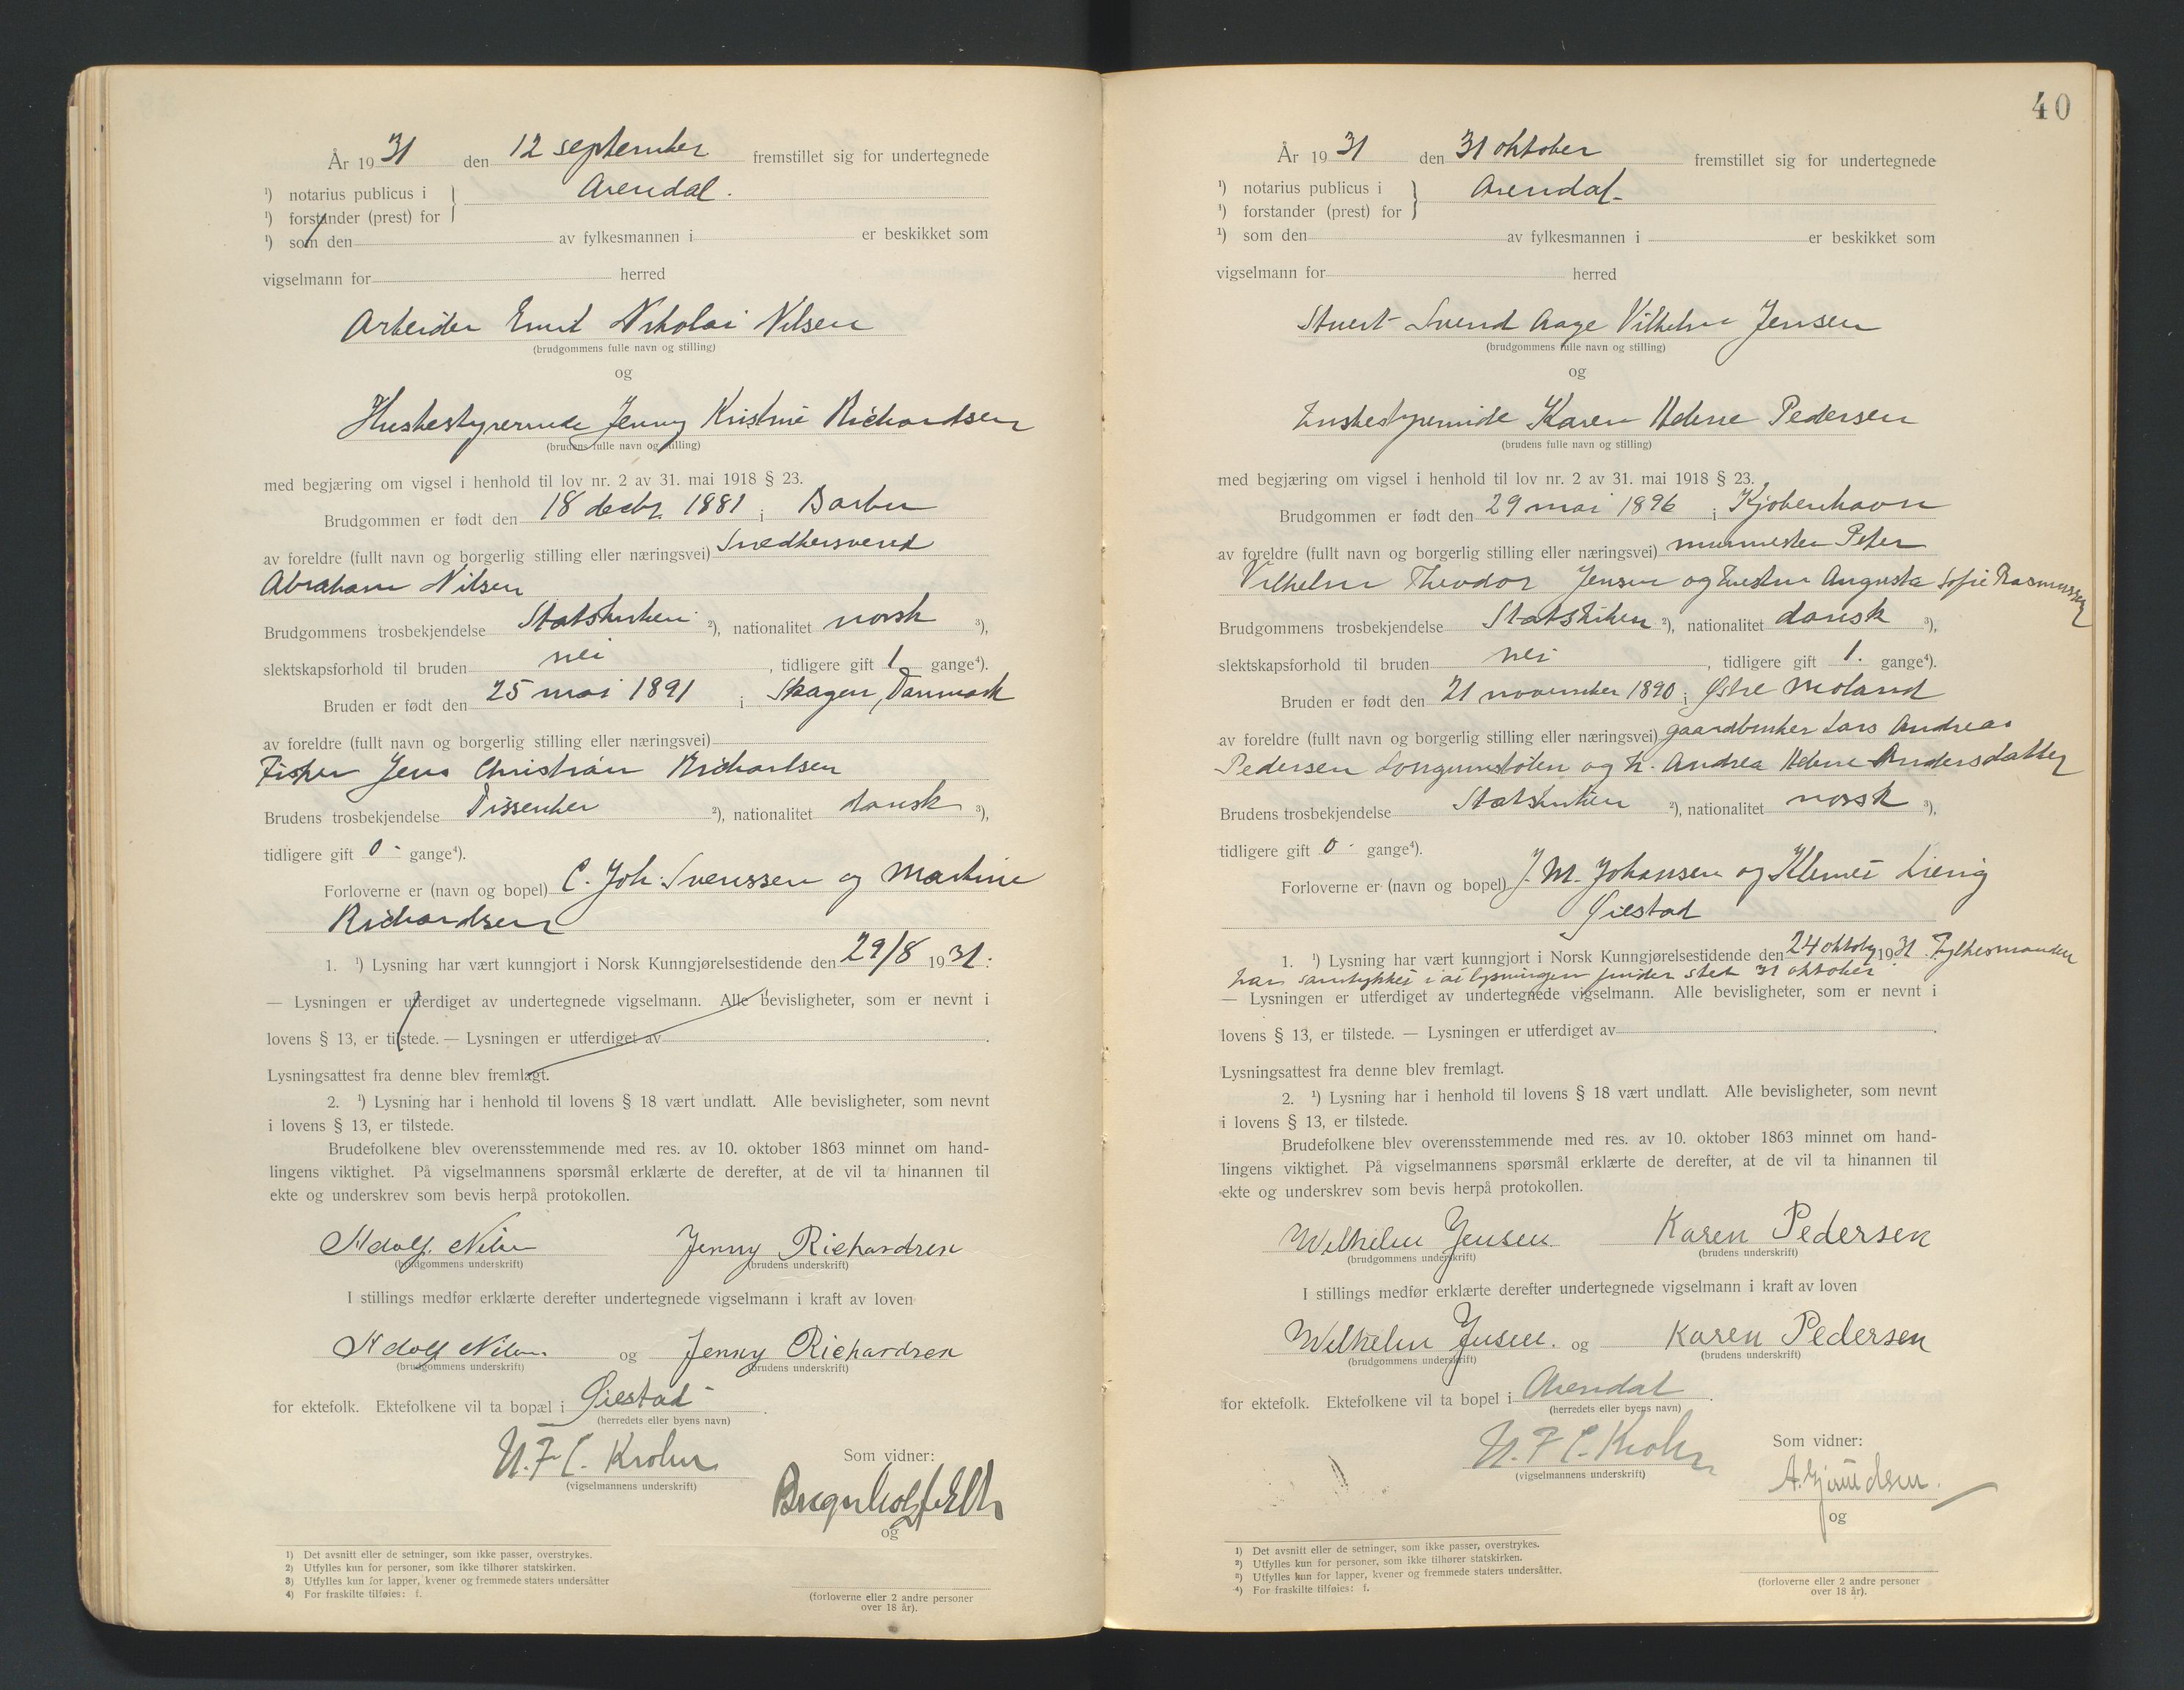 År 1931 den 12 september fremstillet sig for undertegnede
¹) notarius publicus i } Arendal.
¹) forstander (prest) for
¹) som den av fylkesmannen i er beskikket som
vigselmann for herred
Arbeider Emil Nikolai Nilsen
(brudgommens fulle navn og stilling)
og
Husbestyrerinde Jenny Kristine Richardsen
(brudens fulle navn og stilling)
med begjæring om vigsel i henhold til lov nr. 2 av 31. mai 1918 § 23.
Brudgommen er født den 18 decbr. 1881 i Barbu
av foreldre (fullt navn og borgerlig stilling eller næringsvei) Snedkersvend
Abraham Nilsen
Brudgommens trosbekjendelse Statskirken ²), nationalitet norsk ³),
slektskapsforhold til bruden nei, tidligere gift 1 gange⁴).
Bruden er født den 25 mai 1891 i Skagen, Danmark
av foreldre (fullt navn og borgerlig stilling eller næringsvei)
Fisker Jens Christian Richardsen
Brudens trosbekjendelse Dissenter ²), nationalitet dansk ³),
tidligere gift 0 - gange⁴).
Forloverne er (navn og bopel) C. Joh. Svenssen og Martine
Richardsen
1. ¹) Lysning har vært kunngjort i Norsk Kunngjørelsestidende den 29/8 1931.
— Lysningen er utferdiget av undertegnede vigselmann. Alle bevisligheter, som er nevnt i
lovens § 13, er tilstede. — Lysningen er utferdiget av
Lysningsattest fra denne blev fremlagt.
2. ¹) Lysning har i henhold til lovens § 18 vært undlatt. Alle bevisligheter, som nevnt
i lovens § 13, er tilstede.
Brudefolkene blev overensstemmende med res. av 10. oktober 1863 minnet om hand-
lingens viktighet. På vigselmannens spørsmål erklærte de derefter, at de vil ta hinannen til
ekte og underskrev som bevis herpå protokollen.
Adolf Nilsen Jenny Richardsen
(brudgommens underskrift) (brudens underskrift)
I stillings medfør erklærte derefter undertegnede vigselmann i kraft av loven
Adolf Nilsen og Jenny Richardsen
(brudgommens underskrift) (brudens underskrift)
for ektefolk. Ektefolkene vil ta bopæl i Øiestad.
(herredets eller byens navn)
N. F. C. Krohn Som vidner:
(vigselmannens underskrift)
og
1) Det avsnitt eller de setninger, som ikke passer, overstrykes.
2) Utfylles kun for personer, som ikke tilhører statskirken.
3) Utfylles kun for lapper, kvener og fremmede staters undersåtter
4) For fraskilte tilføies: f.
(forloverne eller 2 andre personer
over 18 år).
40
År 1931 den 31 oktober fremstillet sig for undertegnede
¹) notarius publicus i } Arendal.
¹) forstander (prest) for
¹) som den av fylkesmannen i er beskikket som
vigselmann for herred
Stuert Svend Aage Vilhelm Jensen
(brudgommens fulle navn og stilling)
og
Husbestyrerinde Karen Helene Pedersen
(brudens fulle navn og stilling)
med begjæring om vigsel i henhold til lov nr. 2 av 31. mai 1918 § 23.
Brudgommen er født den 29 mai 1896 i Kjøbenhavn
av foreldre (fullt navn og borgerlig stilling eller næringsvei) murmester Peter
Vilhelm Theodor Jensen og hustru Augusta Sofie Rasmussen
Brudgommens trosbekjendelse Statskirken ²), nationalitet dansk ³),
slektskapsforhold til bruden nei, tidligere gift 1. gange⁴).
Bruden er født den 21 november 1890 i Østre Moland
av foreldre (fullt navn og borgerlig stilling eller næringsvei) gaardbruker Lars Andreas
Pedersen Longumstølen og h. Andrea Helene Andersdatter
Brudens trosbekjendelse Statskirken ²), nationalitet norsk ³),
tidligere gift 0 - gange⁴).
Forloverne er (navn og bopel) J. M. Johansen og
Øiestad
1. ¹) Lysning har vært kunngjort i Norsk Kunngjørelsestidende den 24 oktober 1931. Fylkesmanden
har samtykket i at lysningen finder sted 31 oktober
— Lysningen er utferdiget av undertegnede vigselmann. Alle bevisligheter, som er nevnt i
lovens § 13, er tilstede. — Lysningen er utferdiget av
Lysningsattest fra denne blev fremlagt.
2. ¹) Lysning har i henhold til lovens § 18 vært undlatt. Alle bevisligheter, som nevnt
i lovens § 13, er tilstede.
Brudefolkene blev overensstemmende med res. av 10. oktober 1863 minnet om hand-
lingens viktighet. På vigselmannens spørsmål erklærte de derefter, at de vil ta hinannen til
ekte og underskrev som bevis herpå protokollen.
Wilhelm Jensen Karen Pedersen
(brudgommens underskrift) (brudens underskrift)
I stillings medfør erklærte derefter undertegnede vigselmann i kraft av loven
Wilhelm Jensen. og Karen Pedersen
(brudgommens underskrift) (brudens underskrift)
for ektefolk. Ektefolkene vil ta bopel i Arendal.
(herredets eller byens navn)
N. F. C. Krohn Som vidner:
(vigselmannens underskrift)
og
1) Det avsnitt eller de setninger, som ikke passer, overstrykes.
2) Utfylles kun for personer, som ikke tilhører statskirken.
3) Utfylles kun for lapper, kvener og fremmede staters undersåtter.
4) For fraskilte tilføies: f.
(forloverne eller 2 andre personer
over 18 år).